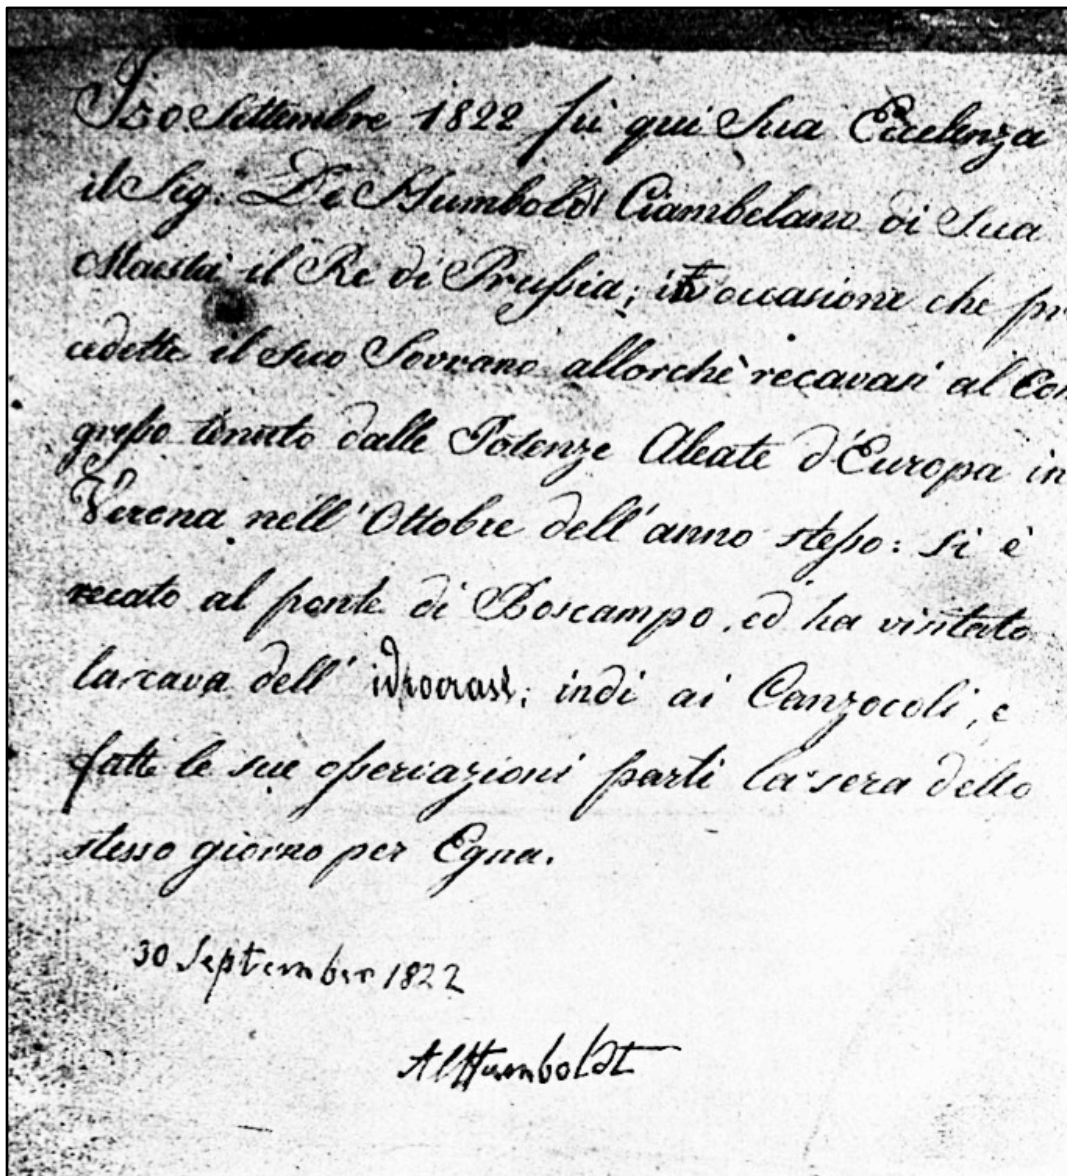 Il 30. Settembre 1822 fù qui Sua Eccelenza
il Sig: De Humboldt Ciambelano di Sua
Maestà il Re di Prussia; in occasione che pre
cedette il suo Sovrano allorchè recavasi al Con
gresso tenuto dalle Potenze Aleate d'Europa in
Verona nell'Ottobre dell'anno stesso: si è
recato al ponte di Boscampo, ed ha visitato
la cava dell' idrocrasi; indi ai Canzocoli, e
fatte le sue osservazioni parti la sera dello
stesso giorno per Egna.
30 September 1822
AlHumboldt